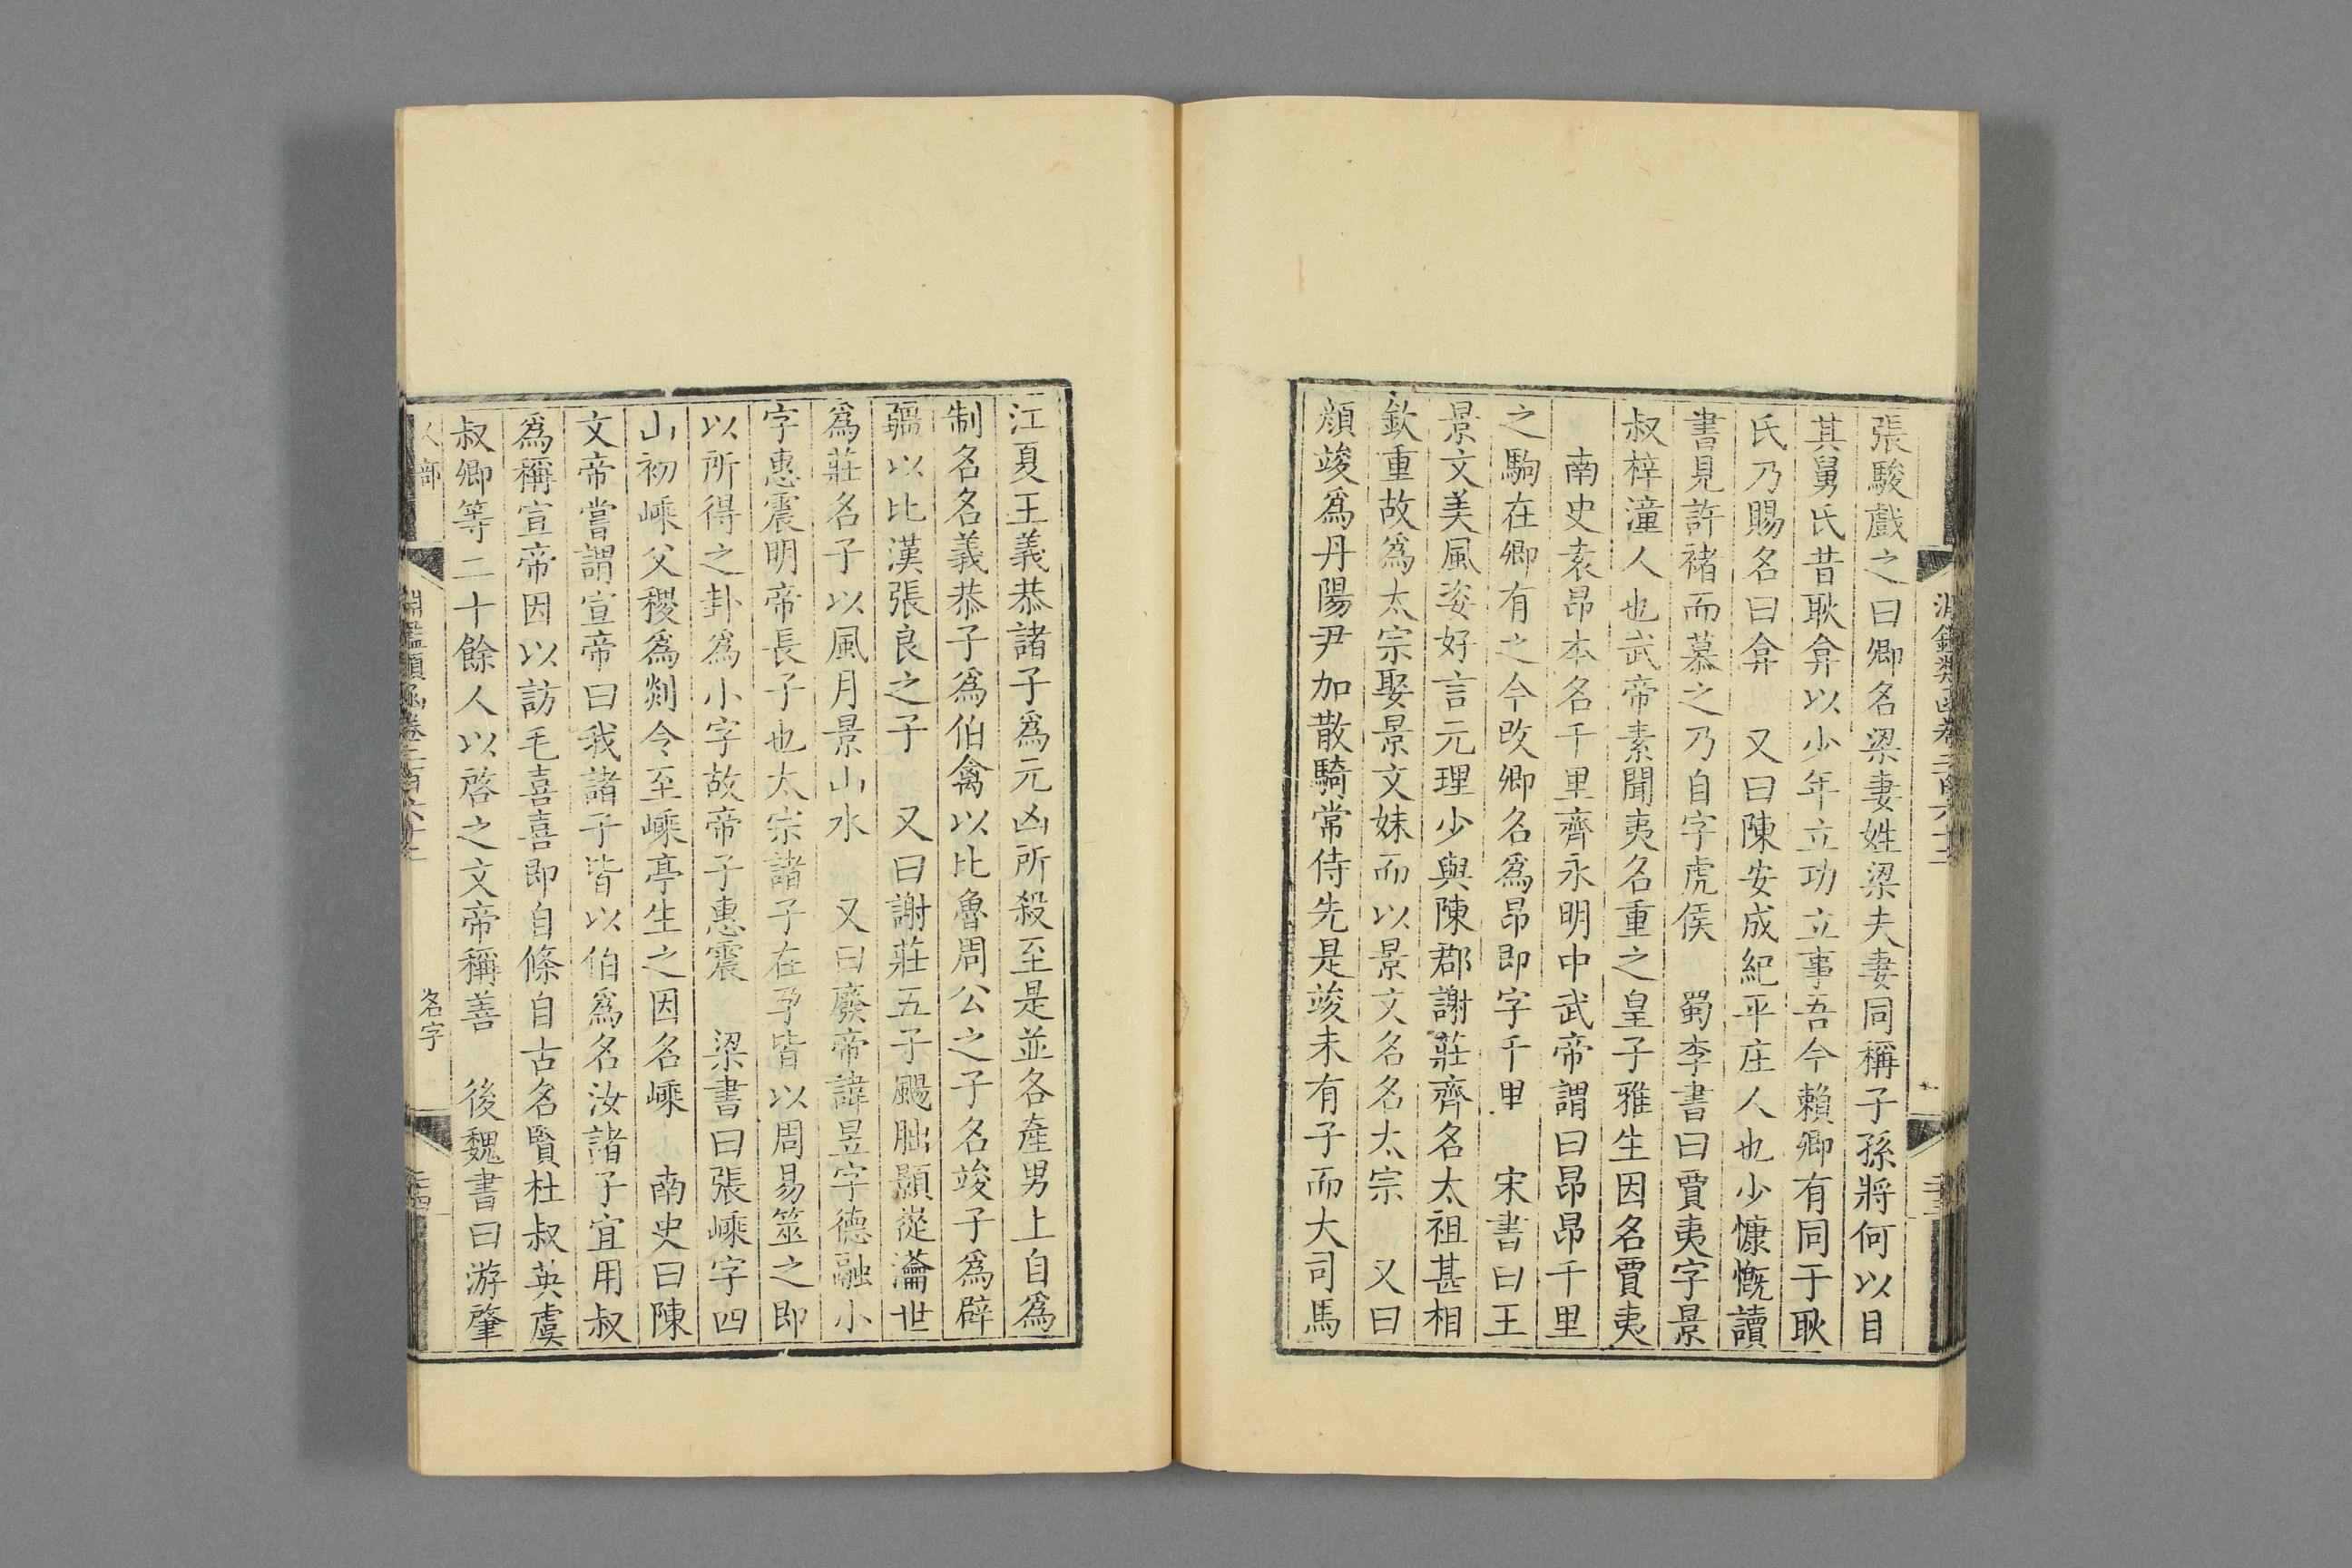 張駿戲之曰卿名梁妻姓梁夫妻同稱子孫將何以目
其舅氏昔耿弇以少年立功立事吾今賴卿有同于耿
氏乃賜名曰弇 又曰陳安成紀平庄人也少慷慨讀
書見許褚而慕之乃自字虎侯 蜀李書曰賈夷字景
叔梓潼人也武帝素聞夷名重之皇子雅生因名賈夷
南史袁昂本名千里齊永明中武帝謂曰昂昂千里
之駒在卿有之今改卿名爲昂即字千里 宋書曰王
景文美風姿好言元理少與陳郡謝莊齊名太祖甚相
欽重故爲太宗娶景文妹而以景文名名太宗 又曰
顔竣爲丹陽尹加散騎常侍先是竣未有子而大司馬
江夏王義恭諸子爲元凶所殺至是並各產男上自爲
制名名義恭子爲伯禽以比魯周公之子名竣子爲辟
疆以比漢張良之子 又曰謝莊五子颺朏顥嵷瀹世
爲莊名子以風月景山水 又曰廢帝諱昱字德融小
字惠震明帝長子也太宗諸子在孕皆以周易筮之即
以所得之卦爲小字故帝子惠震 梁書曰張嵊字四
山初嵊父稷爲剡令至嵊亭生之因名嵊 南史曰陳
文帝嘗謂宣帝曰我諸子皆以伯爲名汝諸子宜用叔
爲稱宣帝因以訪毛喜喜即自條自古名賢杜叔英虞
叔卿等二十餘人以啓之文帝稱善 後魏書曰游肇
人部
名字